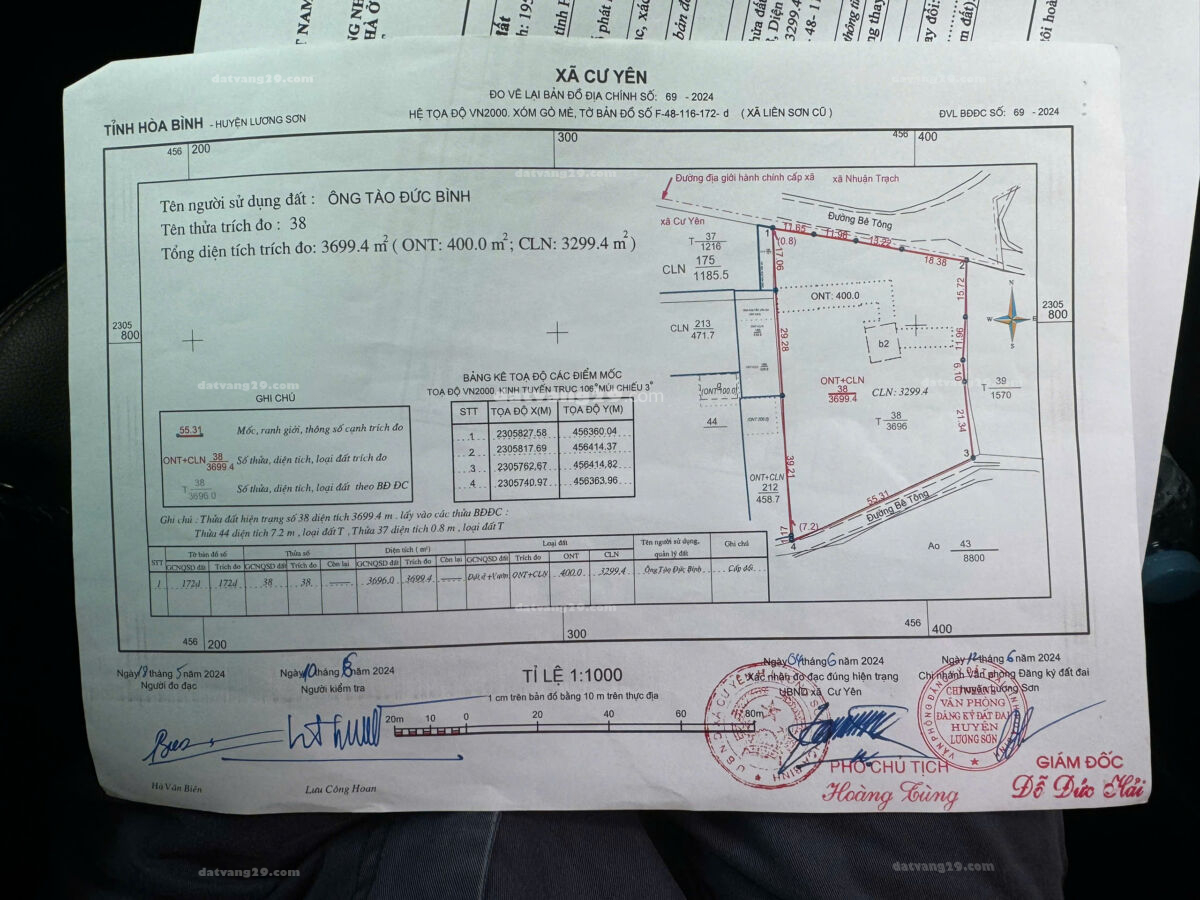 XÃ CƯ YÊN
ĐO VẼ LẠI BẢN ĐỒ ĐỊA CHÍNH SỐ: 69 - 2024
TỈNH HÒA BÌNH - HUYỆN LƯƠNG SƠN
HỆ TỌA ĐỘ VN2000. XÓM GÒ MÈ, TỜ BẢN ĐỒ SỐ F-48-116-172- d ( XÃ LIÊN SƠN CŨ )
ĐVL BĐĐC SỐ: 69 - 2024
456 200
300
456 400
Tên người sử dụng đất : ÔNG TÀO ĐỨC BÌNH
Tên thửa trích đo : 38
Tổng diện tích trích đo: 3699.4 m2 ( ONT: 400.0 m2; CLN: 3299.4 m2 )
Đường địa giới hành chính cấp xã
xã Nhuận Trạch
xã Cư Yên
Đường Bê Tông
T 37 1216
CLN 175 1185.5
1
(0.8)
11.65
11.96
13.22
18.38
2
17.06
15.72
ONT: 400.0
N
W
E
S
2305 800
2305 800
CLN 213 471.7
29.28
b2
11.96
6.10
ONT+CLN 38 3699.4
CLN: 3299.4
T 38 3696
T 39 1570
21.34
44
39.21
3
ONT+CLN 212 458.7
55.31
Đường Bê Tông
(7.2)
1.17
4
Ao 43 8800
BẢNG KÊ TOẠ ĐỘ CÁC ĐIỂM MỐC
TOẠ ĐỘ VN2000, KINH TUYẾN TRỤC 106° MÚI CHIẾU 3°
STT TỌA ĐỘ X(M) TỌA ĐỘ Y(M)
1 2305827.58 456360.04
2 2305817.69 456414.37
3 2305762.67 456414.82
4 2305740.97 456363.96
GHI CHÚ
55.31 Mốc, ranh giới, thông số cạnh trích đo
ONT+CLN 38 3699.4 Số thửa, diện tích, loại đất trích đo
T 38 3696.0 Số thửa, diện tích, loại đất theo BĐ ĐC
Ghi chú : Thửa đất hiện trạng số 38 diện tích 3699.4 m . lấy vào các thửa BĐĐC :
Thửa 44 diện tích 7.2 m , loại đất T , Thửa 37 diện tích 0.8 m , loại đất T
STT Tờ bản đồ số Thửa số Diện tích ( m2) Loại đất Tên người sử dụng, quản lý đất Ghi chú
GCNQSD đất Trích đo GCNQSD đất Trích đo Còn lại GCNQSD đất Trích đo Còn lại GCNQSD đất Trích đo ONT CLN
1 172d 172d 38 38 3696.0 3699.4 Đất ở+Vườn ONT+CLN 400.0 3299.4 Ông Tào Đức Bình Cấp đổi
456 200
300
456 400
Ngày 18 tháng 5 năm 2024
Người đo đạc
Hà Văn Biên
Ngày 10 tháng 5 năm 2024
Người kiểm tra
Lưu Công Hoan
TỈ LỆ 1:1000
1 cm trên bản đồ bằng 10 m trên thực địa
20m 10 0 20 40 60 80m
Ngày 04 tháng 6 năm 2024
Xác nhận đo đạc đúng hiện trạng
UBND xã Cư Yên
PHÓ CHỦ TỊCH
Hoàng Tùng
Ngày 12 tháng 6 năm 2024
Chi nhánh Văn phòng Đăng ký đất đai
huyện Lương Sơn
CHI NHÁNH
VĂN PHÒNG
ĐĂNG KÝ ĐẤT ĐAI
HUYỆN
LƯƠNG SƠN
GIÁM ĐỐC
Đỗ Đức Hải
datvang29.com
datvang29.com
datvang29.com
datvang29.com
datvang29.com
datvang29.com
datvang29.com
datvang29.com